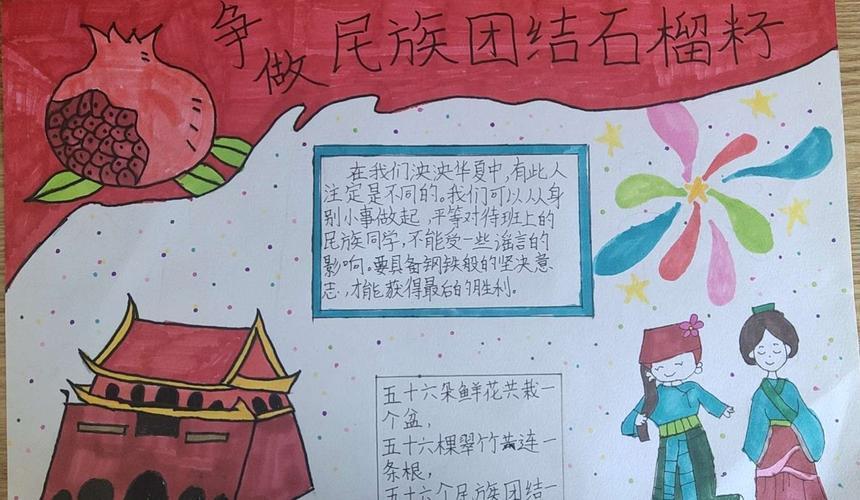 争做民族团结石榴籽
在我们泱泱华夏中,有此人
注定是不同的。我们可以从身
别小事做起,平等对待班上的
民族同学,不能受一些谣言的
影响。要具备钢铁般的坚决意
志,才能获得最后的胜利。
五十六朵鲜花共栽一
个盆,
五十六棵翠竹连一
条根,
五十六个民族团结一